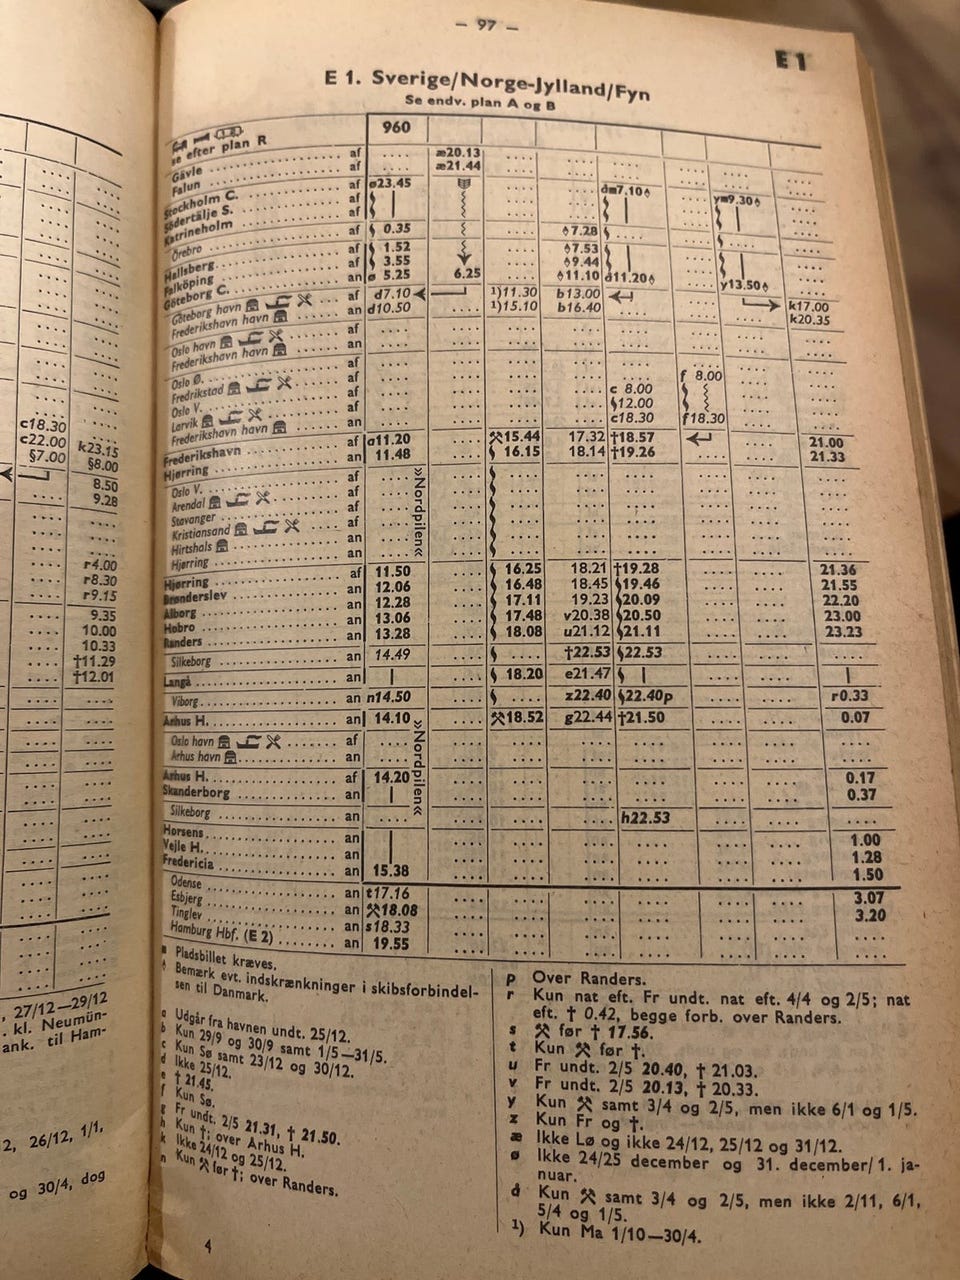 — 97 —
E 1
E 1. Sverige/Norge-Jylland/Fyn
Se endv. plan A og B
se efter plan R 960
Gävle af .... æ20.13
Falun af .... æ21.44
Stockholm C. af ø23.45 dm7.10 ym9.30
Södertälje S. af
Katrineholm af
Örebro af 0.35 7.28
Hallsberg af 1.52 7.53
Falköping af 3.55 9.44
Göteborg C. an ø 5.25 6.25 11.10 d11.20 y13.50
Göteborg havn af d7.10 1)11.30 b13.00 k17.00
Frederikshavn havn an d10.50 1)15.10 b16.40 k20.35
Oslo havn af
Frederikshavn havn an
Oslo Ø. af
Fredrikstad af
Oslo V. af c 8.00 f 8.00
Larvik af §12.00
Frederikshavn havn an c18.30 f18.30
Frederikshavn af a11.20 15.44 17.32 †18.57 21.00
Hjørring an 11.48 16.15 18.14 †19.26 21.33
»Nordpilen«
Oslo V. af
Arendal af
Stavanger af
Kristiansand af
Hirtshals an
Hjørring an
Hjørring af 11.50 16.25 18.21 †19.28 21.36
Brønderslev an 12.06 16.48 18.45 19.46 21.55
Ålborg an 12.28 17.11 19.23 20.09 22.20
Hobro an 13.06 17.48 v20.38 20.50 23.00
Randers an 13.28 18.08 u21.12 21.11 23.23
Silkeborg an 14.49 †22.53 22.53
Langå an 18.20 e21.47
Viborg an n14.50 z22.40 22.40p r0.33
Århus H. an 14.10 18.52 g22.44 †21.50 0.07
»Nordpilen«
Oslo havn af
Århus havn an
Århus H. af 14.20 0.17
Skanderborg an 0.37
Silkeborg an h22.53
Horsens an 1.00
Vejle H. an 1.28
Fredericia an 15.38 1.50
Odense an t17.16 3.07
Esbjerg an 18.08 3.20
Tinglev an s18.33
Hamburg Hbf. (E 2) an 19.55
Pladsbillet kræves.
Bemærk evt. indskrænkninger i skibsforbindel-
sen til Danmark.
a Udgår fra havnen undt. 25/12.
b Kun 29/9 og 30/9 samt 1/5—31/5.
c Kun Sø samt 23/12 og 30/12.
d Ikke 25/12.
e † 21.45.
f Kun Sø.
g Fr undt. 2/5 21.31, † 21.50.
h Kun †; over Århus H.
k Ikke 24/12 og 25/12.
n Kun før †; over Randers.
p Over Randers.
r Kun nat eft. Fr undt. nat eft. 4/4 og 2/5; nat
eft. † 0.42, begge forb. over Randers.
s før † 17.56.
t Kun før †.
u Fr undt. 2/5 20.40, † 21.03.
v Fr undt. 2/5 20.13, † 20.33.
y Kun samt 3/4 og 2/5, men ikke 6/1 og 1/5.
z Kun Fr og †.
æ Ikke Lø og ikke 24/12, 25/12 og 31/12.
ø Ikke 24/25 december og 31. december/1. ja-
nuar.
d Kun samt 3/4 og 2/5, men ikke 2/11, 6/1,
5/4 og 1/5.
1) Kun Ma 1/10—30/4.
4
c18.30
c22.00 k23.15
§7.00 §8.00
8.50
9.28
r4.00
r8.30
r9.15
9.35
10.00
10.33
†11.29
†12.01
, 27/12—29/12
. kl. Neumün-
ank. til Ham-
2, 26/12, 1/1,
og 30/4, dog